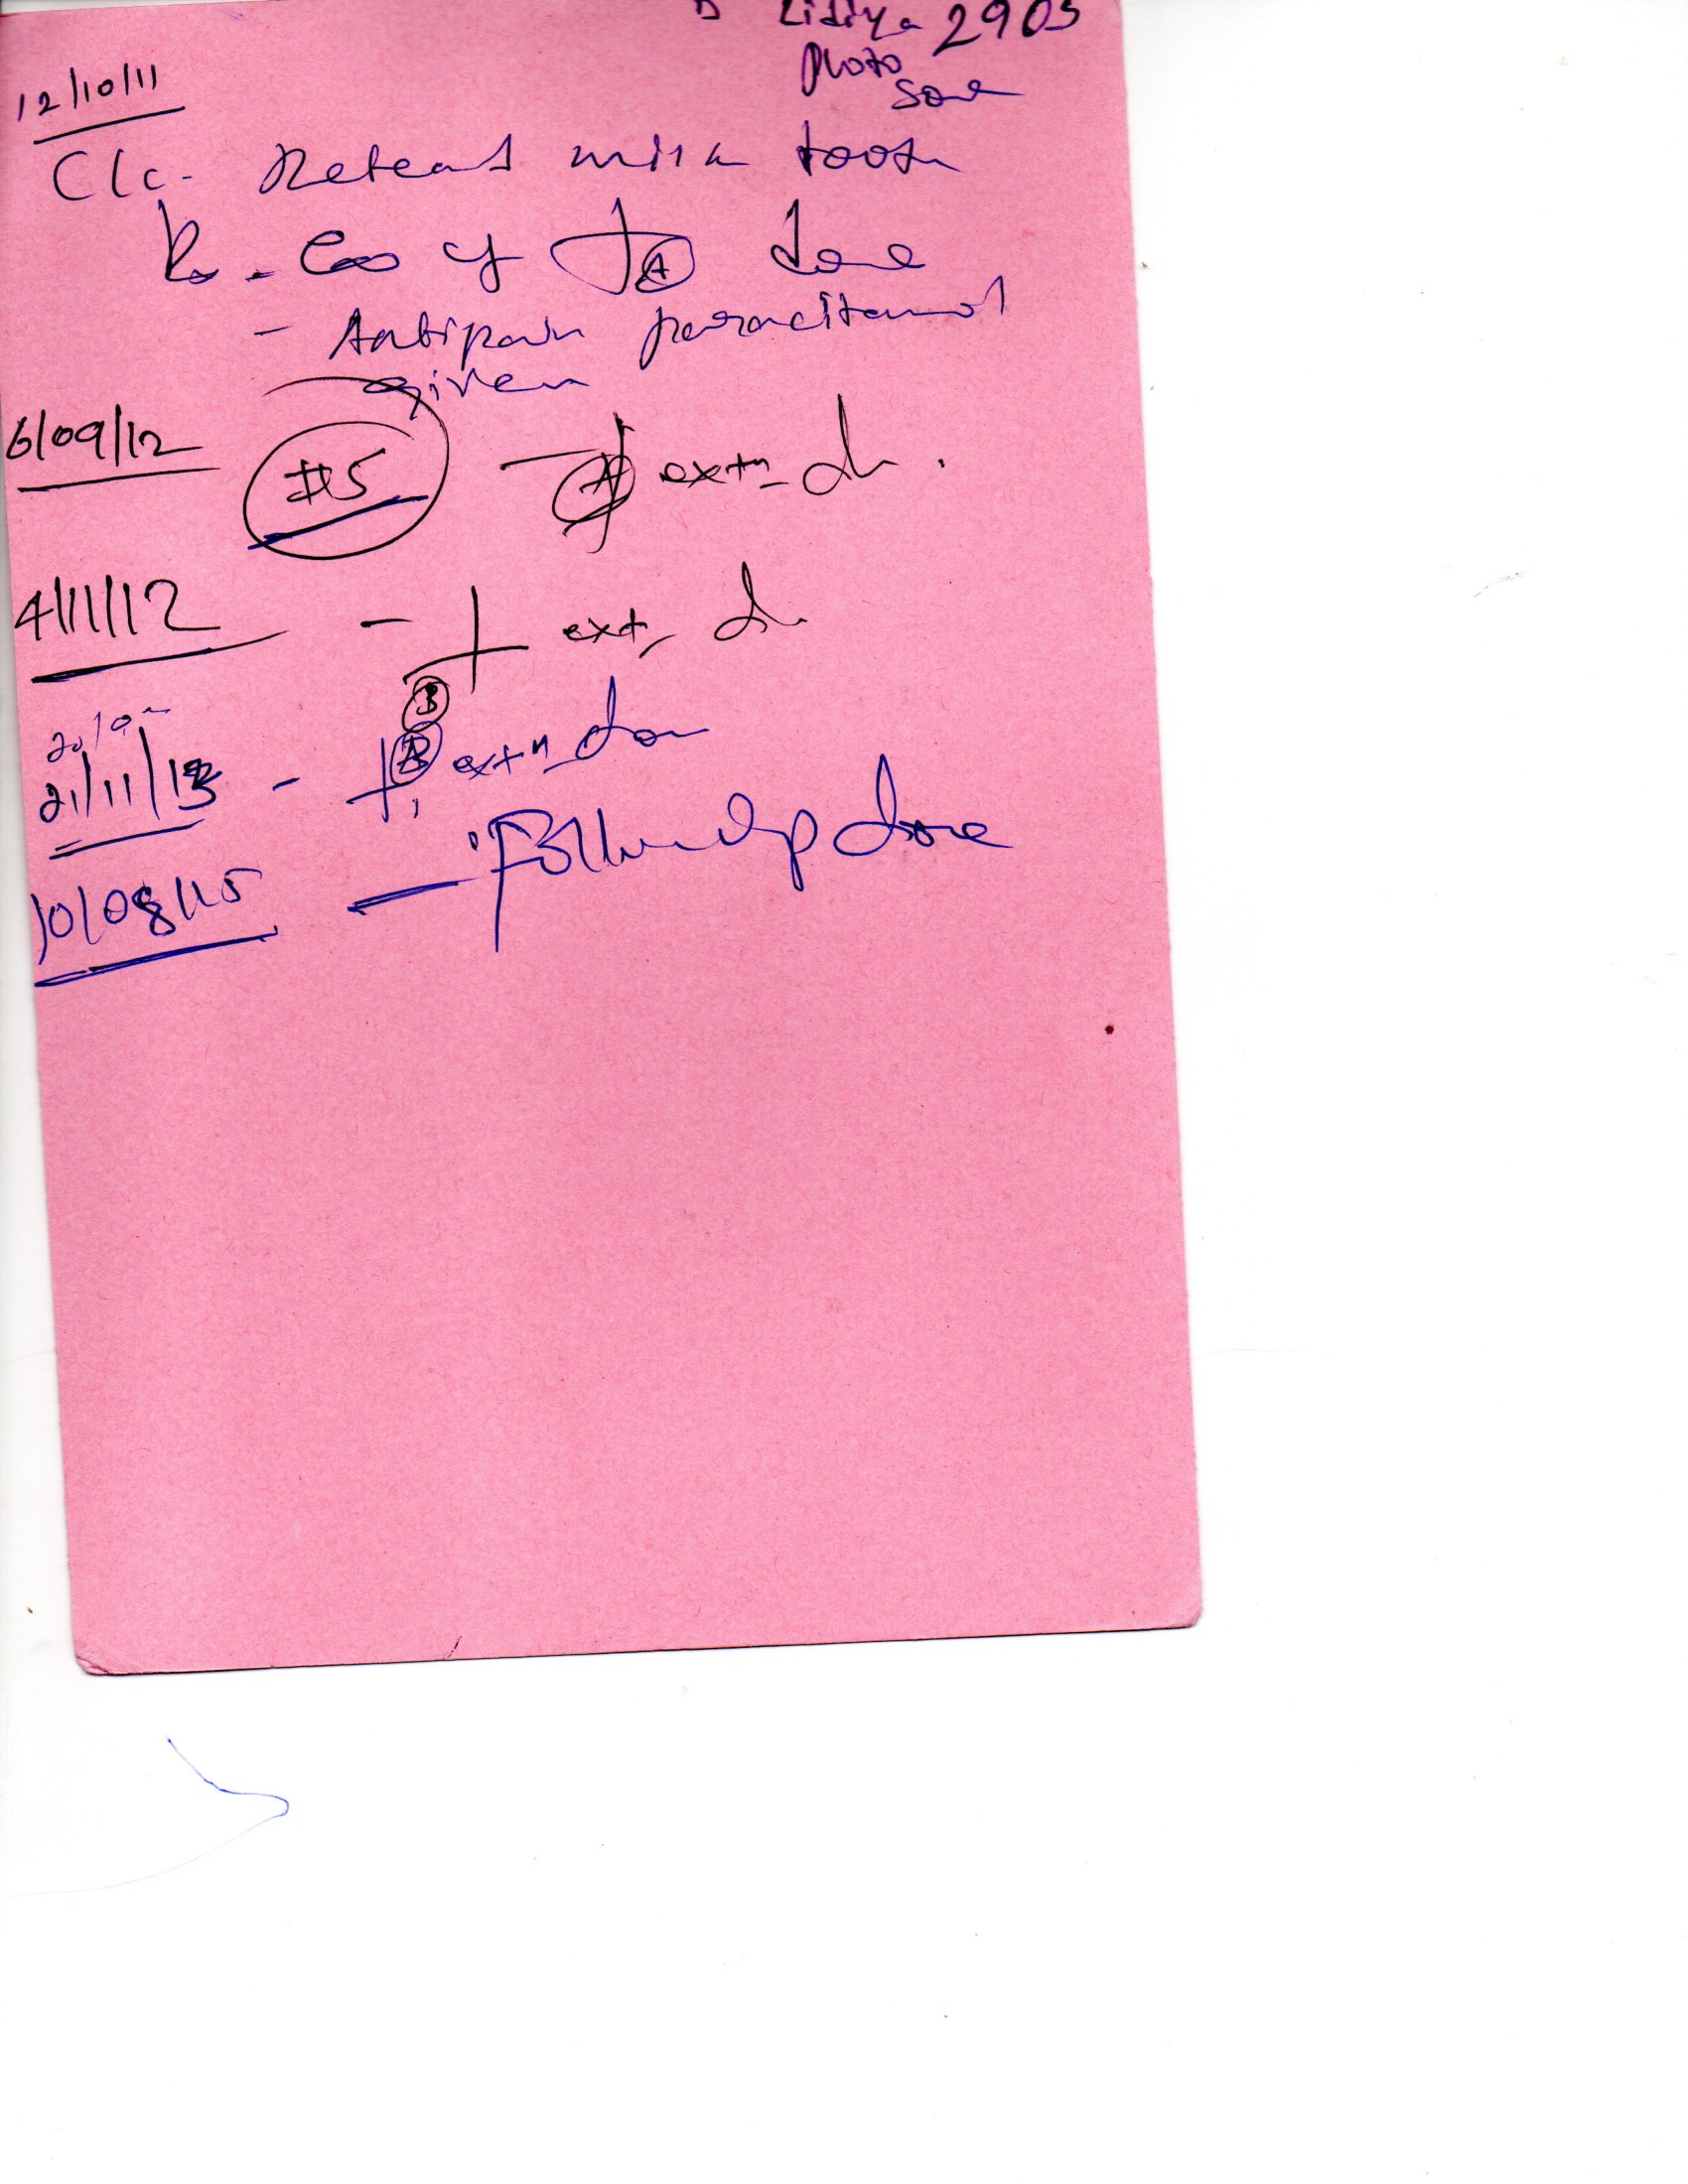 Lidiya 2903
photo
12/10/11
C/c. Retead milk tooth
Rx - Exo of A done
- Antipain paracitamol
given
6/09/12 #5 - A extn dn.
4/11/12 - B ext, dn
21/11/13 - A extn don
10/08/15 - Follow Up done